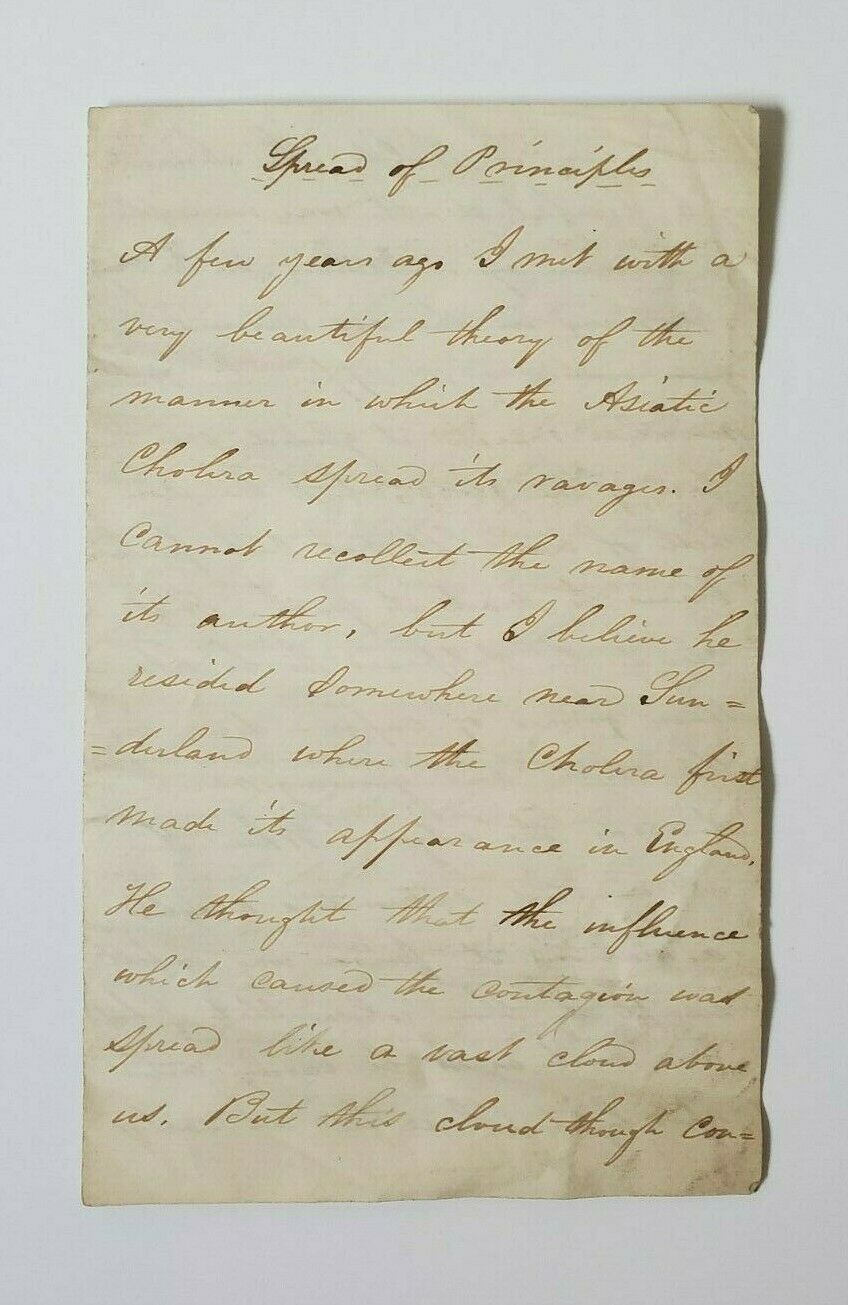 Spread of Principles
A few years ago I met with a
very beautiful theory of the
manner in which the Asiatic
Cholera spread its ravages. I
cannot recollect the name of
its author, but I believe he
resided somewhere near Sun=
=derland where the Cholera first
made its appearance in England.
He thought that the influence
which caused the contagion was
spread like a vast cloud above
us. But this cloud though con=